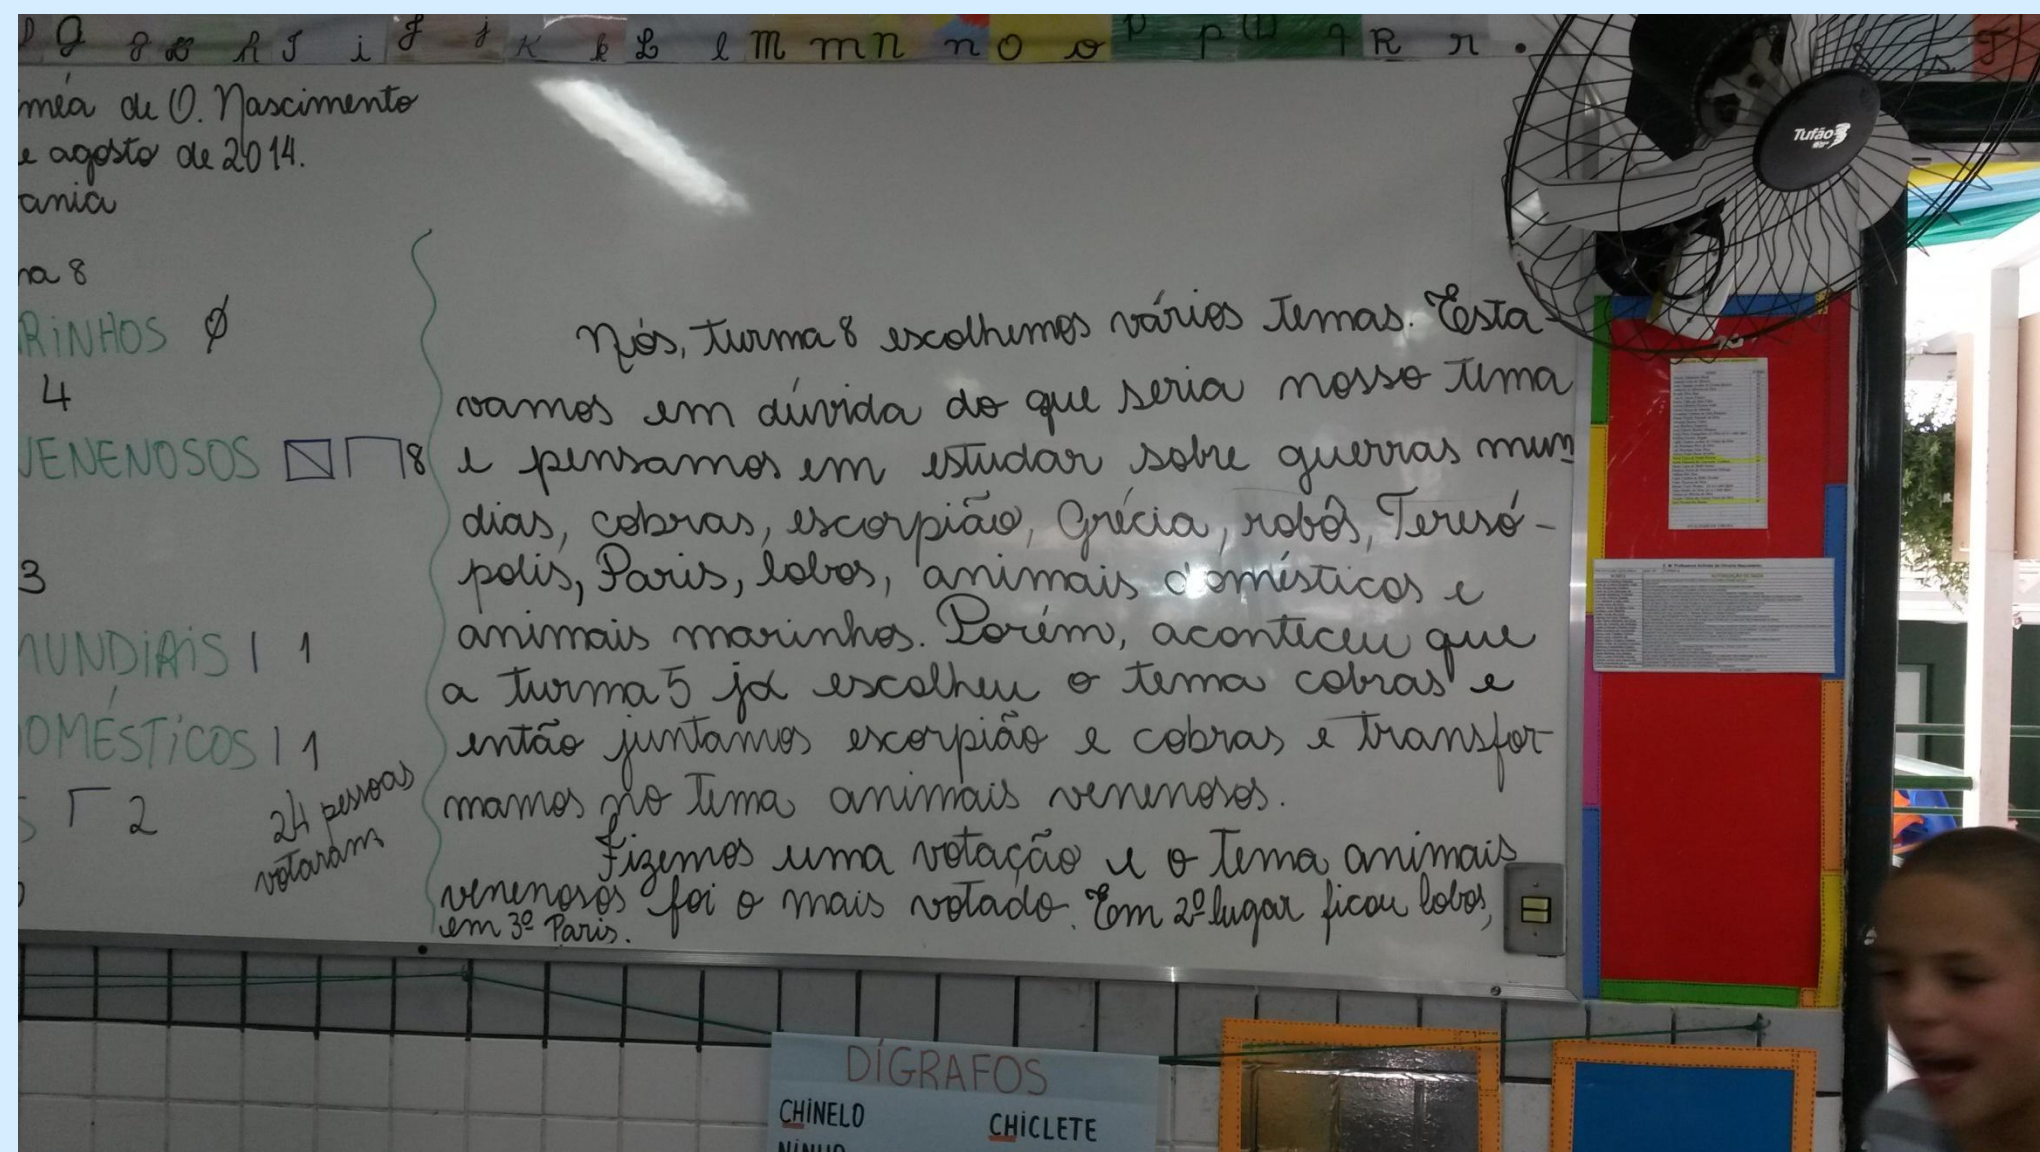 G g H h I i J j K k L l M m N n O o P p Q q R r
méa de O. Nascimento
e agosto de 2014.
ania
na 8
RINHOS
4
VENENOSOS 8
3
MUNDIAIS | 1
DOMÉSTICOS | 1
2
24 pessoas
votaram
Nós, turma 8 escolhemos vários temas. Esta-
vamos em dúvida do que seria nosso tema
e pensamos em estudar sobre guerras mun
dias, cobras, escorpião, Grécia, robôs, Teresó-
polis, Paris, lobos, animais domésticos e
animais marinhos. Porém, aconteceu que
a turma 5 já escolheu o tema cobras e
então juntamos escorpião e cobras e transfor
mamos no tema animais venenosos.
Fizemos uma votação e o tema animais
venenosos foi o mais votado. Em 2º lugar ficou lobos,
em 3º Paris.
Tufão
DÍGRAFOS
CHINELO CHICLETE
NINHO